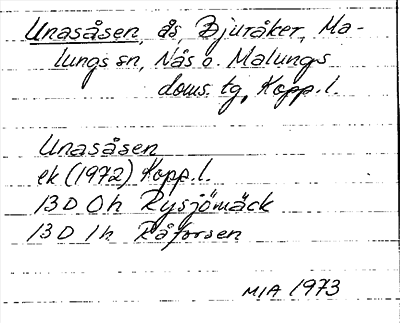 Unasåsen, ås, Djuråker, Ma-
lungs sn, Nås o. Malungs
doms. tg, Kopp. l.
Unasåsen
ek (1972) Kopp. l.
13 D 0h Rysjömäck
13 D 1h Råforsen
MIA 1973